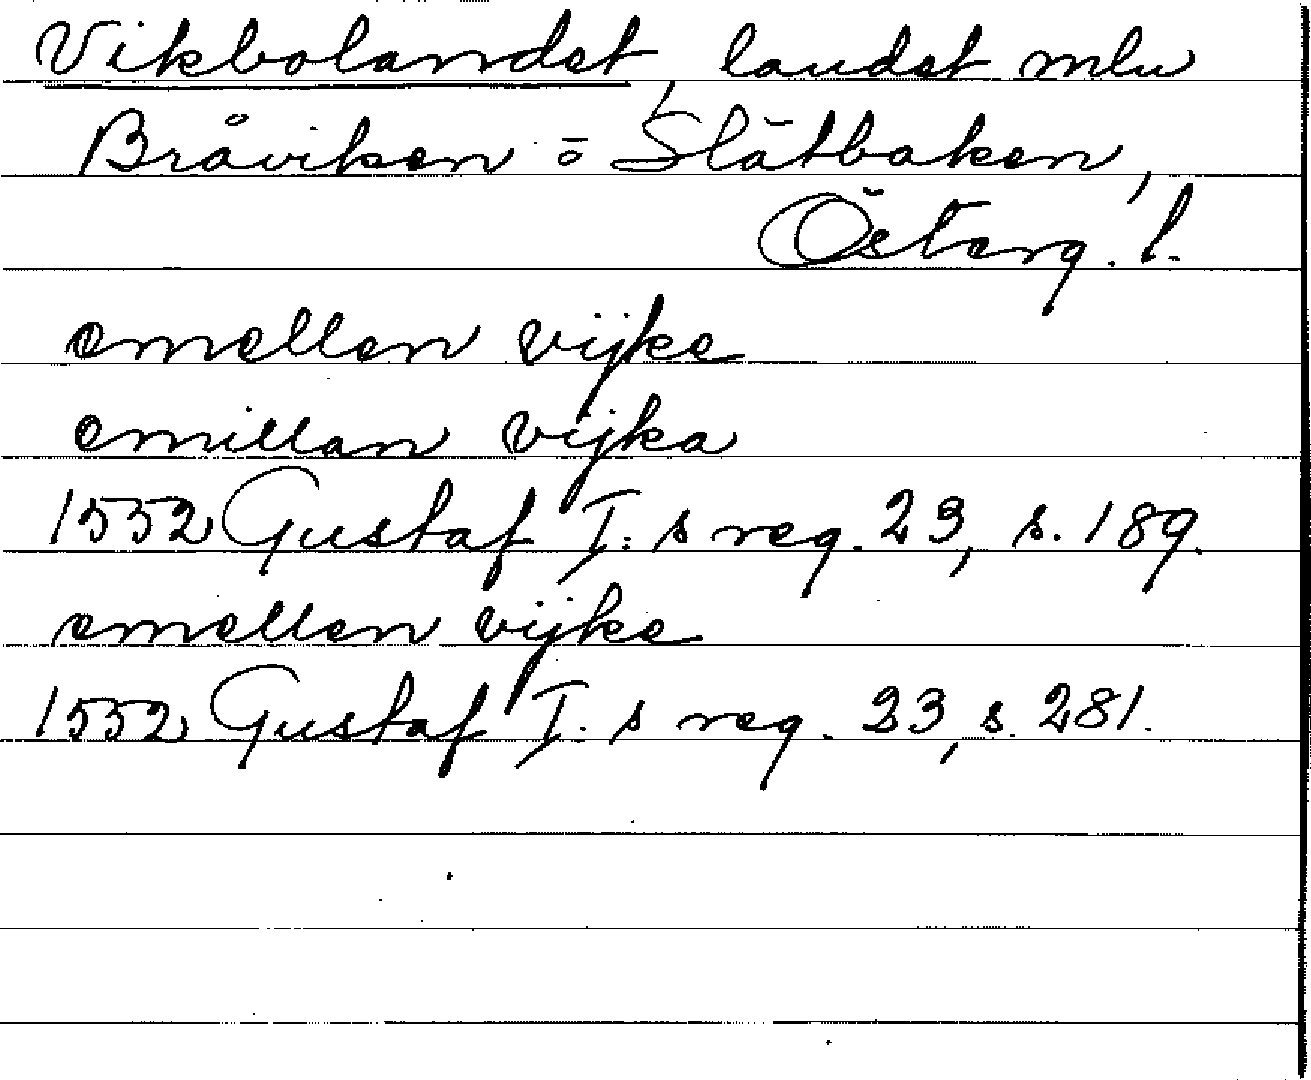 Vikbolandet, landet mlu
Bråviken o Slätbaken,
Österg. l.
emellen vijke
emillan vijka
1552 Gustaf I: s reg. 23, s. 189.
emellen vijke
1552 Gustaf I: s reg. 23, s. 281.